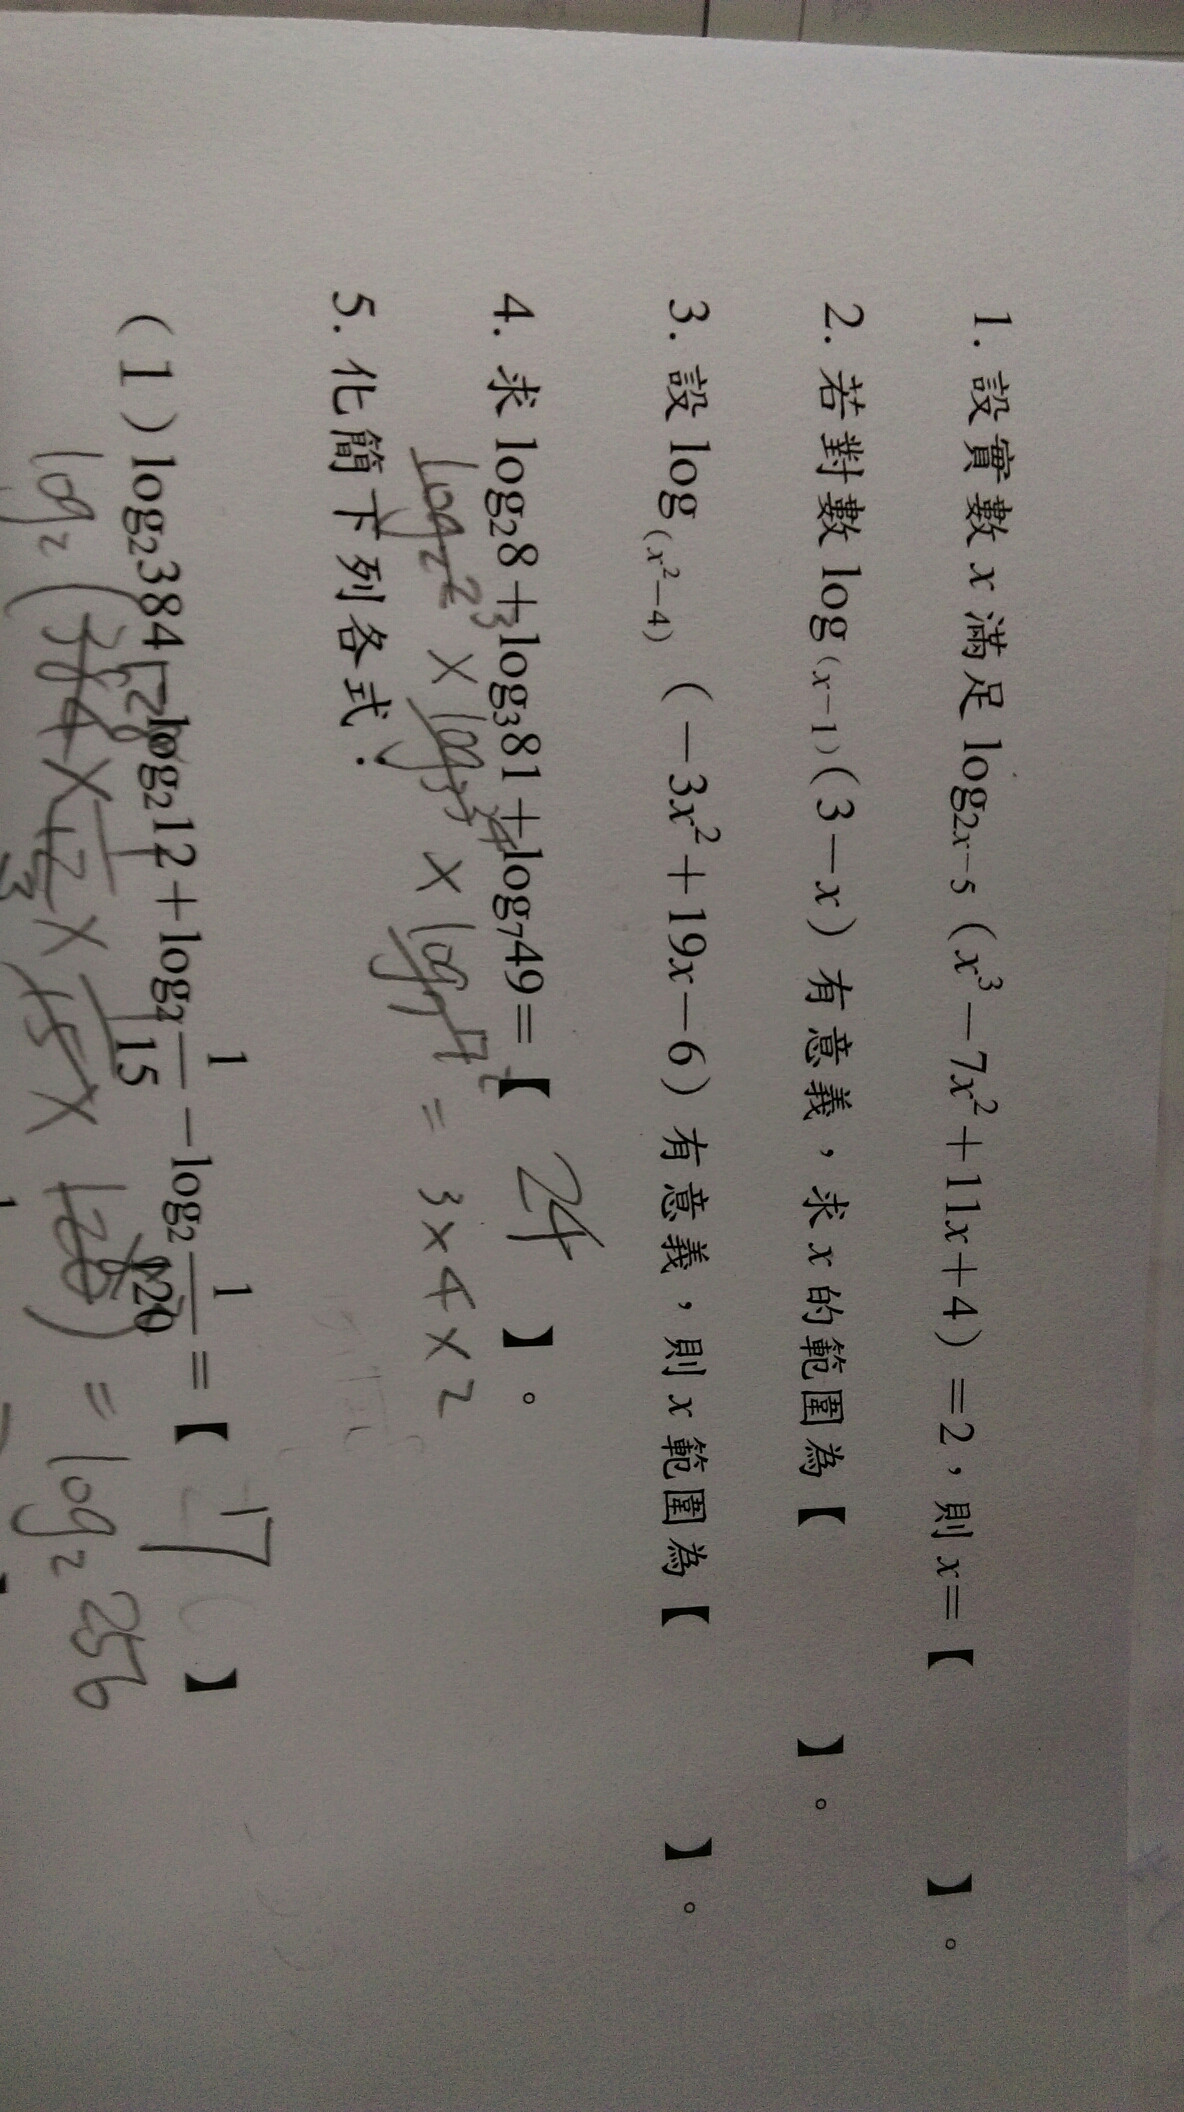 1. 設實數 x 滿足 log₂ₓ₋₅（x³－7x²＋11x＋4）＝2，則 x＝【　　】。
2. 若對數 log₍ₓ₋₁₎（3－x）有意義，求 x 的範圍為【　　】。
3. 設 log₍ₓ²₋₄₎（－3x²＋19x－6）有意義，則 x 範圍為【　　】。
4. 求 log₂8＋log₃81＋log₇49＝【 24 】。
log₂2³ × log₃3⁴ × log₇7² = 3×4×2
5. 化簡下列各式：
（1）log₂384－log₂12＋log₂1/15－log₂1/120＝【 】
log₂ ( = log₂ 256